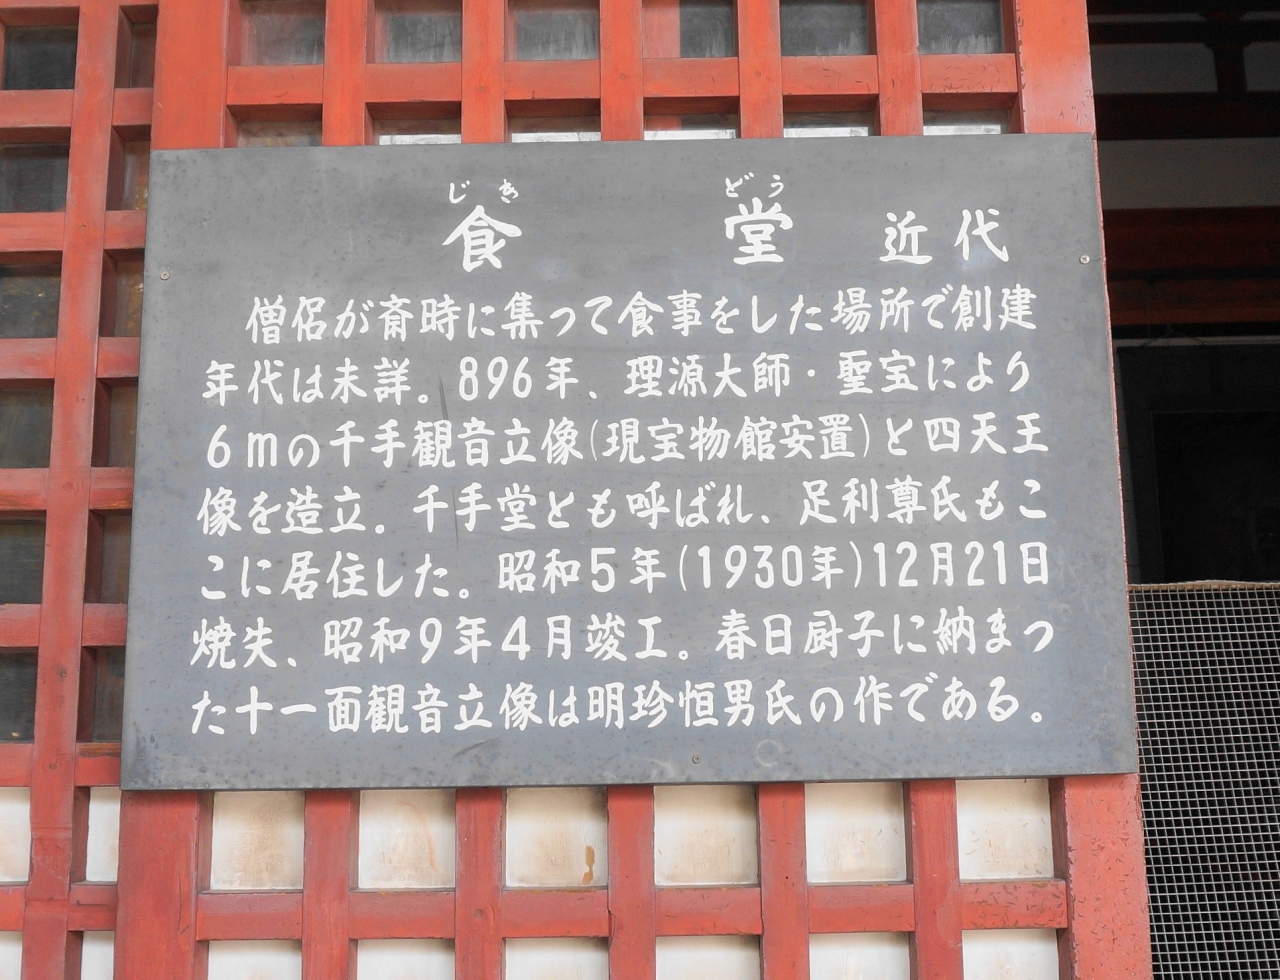 じき どう
食 堂 近代
僧侶が斎時に集って食事をした場所で創建
年代は未詳。896年、理源大師・聖宝により
6mの千手観音立像(現宝物館安置)と四天王
像を造立。千手堂とも呼ばれ、足利尊氏もこ
こに居住した。昭和5年(1930年)12月21日
焼失、昭和9年4月竣工。春日厨子に納まっ
た十一面観音立像は明珍恒男氏の作である。